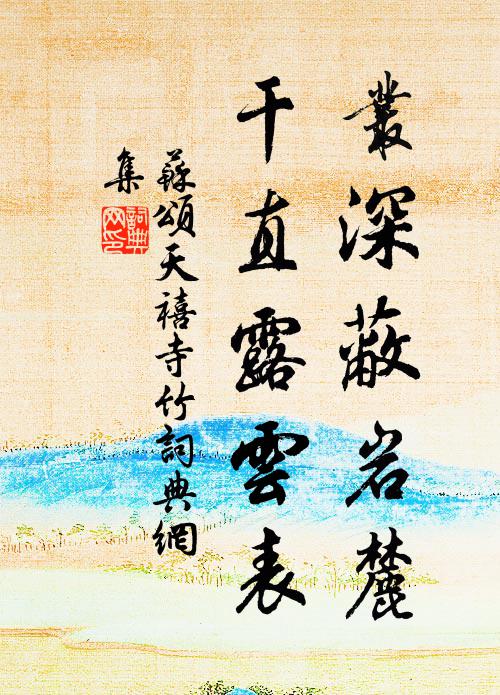 叢深蔽岩麓
干直露雲表
蘇頌天禧寺竹詞典網
集
詞典網印